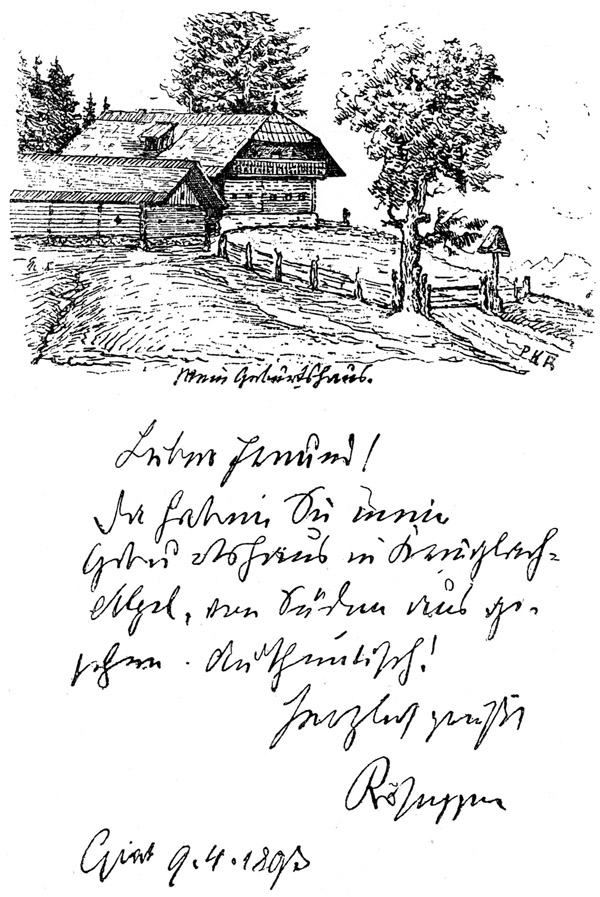 P K R
Mein Geburtshaus.
Lieber Freund!
Da haben Sie mein
Geburtshaus in
Alpel, von Süden aus ge-
sehen. Authentisch!
Herzlich grüßt
Rosegger
Graz 9.4.1893